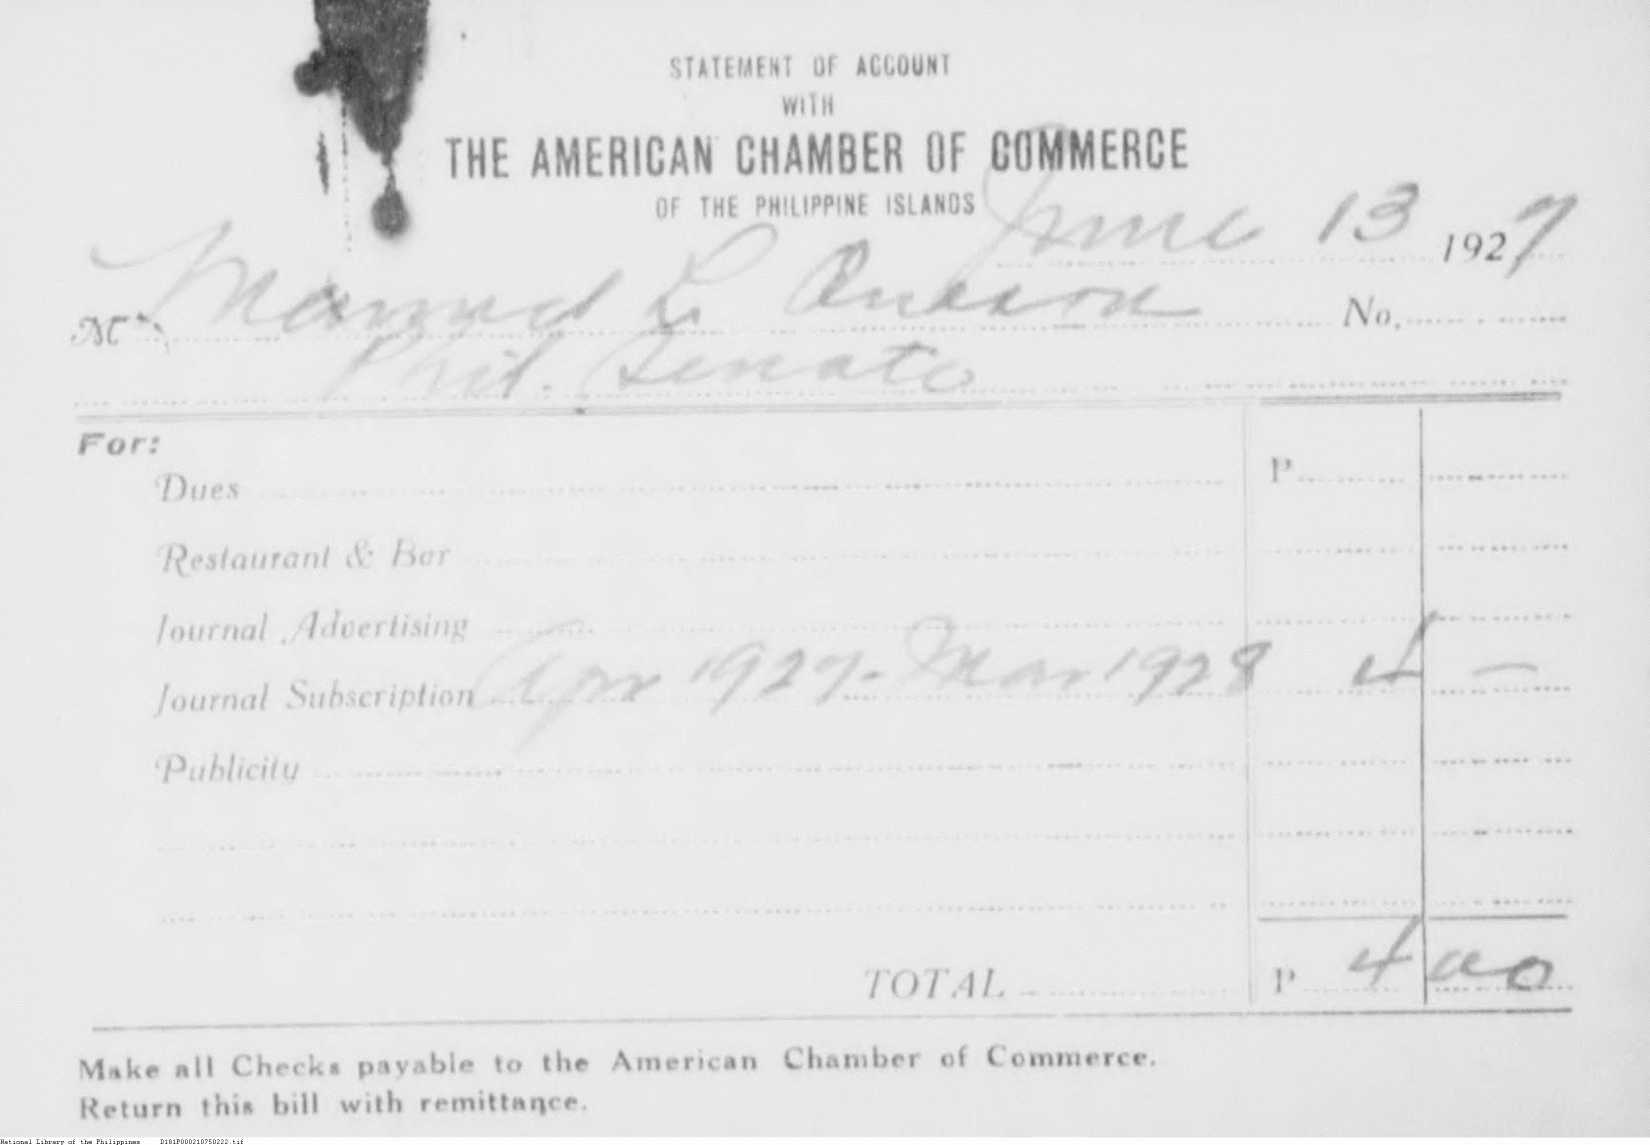 STATEMENT OF ACCOUNT
WITH
THE AMERICAN CHAMBER OF COMMERCE
OF THE PHILIPPINE ISLANDS
June 13 1927
M Manuel L Quezon No.
Phil. Senate
For:
Dues P
Restaurant & Bar
Journal Advertising
Journal Subscription Apr 1927 - Mar 1928 4 —
Publicity
TOTAL P 4 00
Make all Checks payable to the American Chamber of Commerce.
Return this bill with remittance.
National Library of the Philippines D181P000210750222.tif